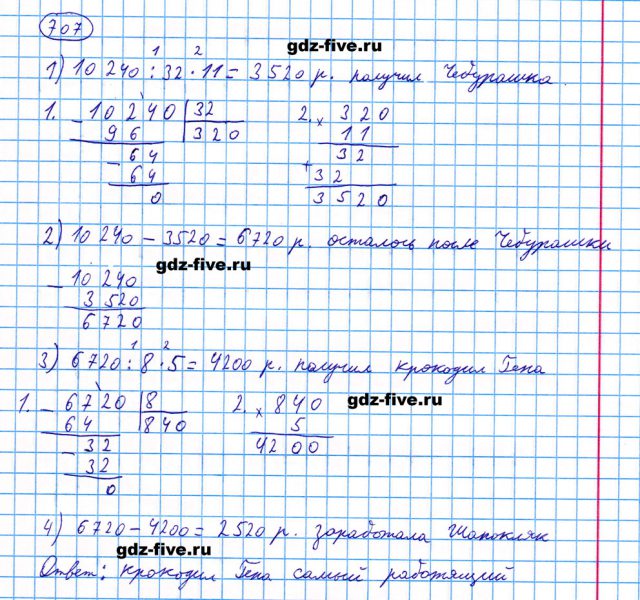 707
gdz-five.ru
1 2
1) 10 240 : 32 · 11 = 3520 р. получил Чебурашка.
1. 10240 |32
- 96 320
64
- 64
0
2. 320
× 11
32
+ 32
3520
2) 10 240 - 3520 = 6720 р. осталось после Чебурашки
gdz-five.ru
- 10 240
3 520
6 720
1 2
3) 6720 : 8 · 5 = 4200 р. получил крокодил Гена
1. - 6720 |8
64 840
- 32
32
0
2. × 840
5
4200
gdz-five.ru
4) 6720 - 4200 = 2520 р. заработала Шапокляк
gdz-five.ru
Ответ: крокодил Гена самый работящий